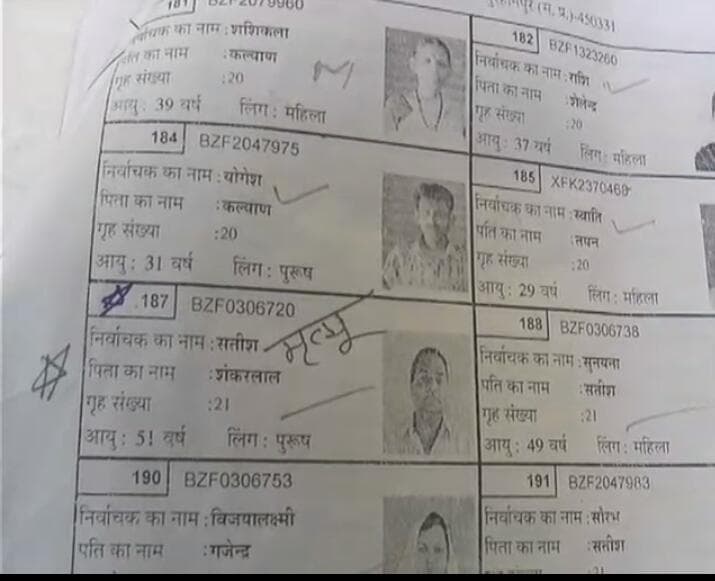 181 BZF2079960
निर्वाचक का नाम : शशिकला
पति का नाम : कल्याण
गृह संख्या :20
आयु : 39 वर्ष लिंग : महिला
M
(म. प्र.)-450331
182 BZF1323260
निर्वाचक का नाम : राशि
पिता का नाम : शैलेन्द्र
गृह संख्या :20
आयु : 37 वर्ष लिंग : महिला
184 BZF2047975
निर्वाचक का नाम : योगेश
पिता का नाम : कल्याण
गृह संख्या :20
आयु : 31 वर्ष लिंग : पुरूष
185 XFK2370468
निर्वाचक का नाम : स्वाति
पति का नाम : तपन
गृह संख्या :20
आयु : 29 वर्ष लिंग : महिला
187 BZF0306720
निर्वाचक का नाम : सतीश
मृत्यु
पिता का नाम : शंकरलाल
गृह संख्या :21
आयु : 51 वर्ष लिंग : पुरूष
188 BZF0306738
निर्वाचक का नाम : सुनयना
पति का नाम : सतीश
गृह संख्या :21
आयु : 49 वर्ष लिंग : महिला
190 BZF0306753
निर्वाचक का नाम : विजयालक्ष्मी
पति का नाम : गजेन्द्र
191 BZF2047983
निर्वाचक का नाम : सोरभ
पिता का नाम : सतीश